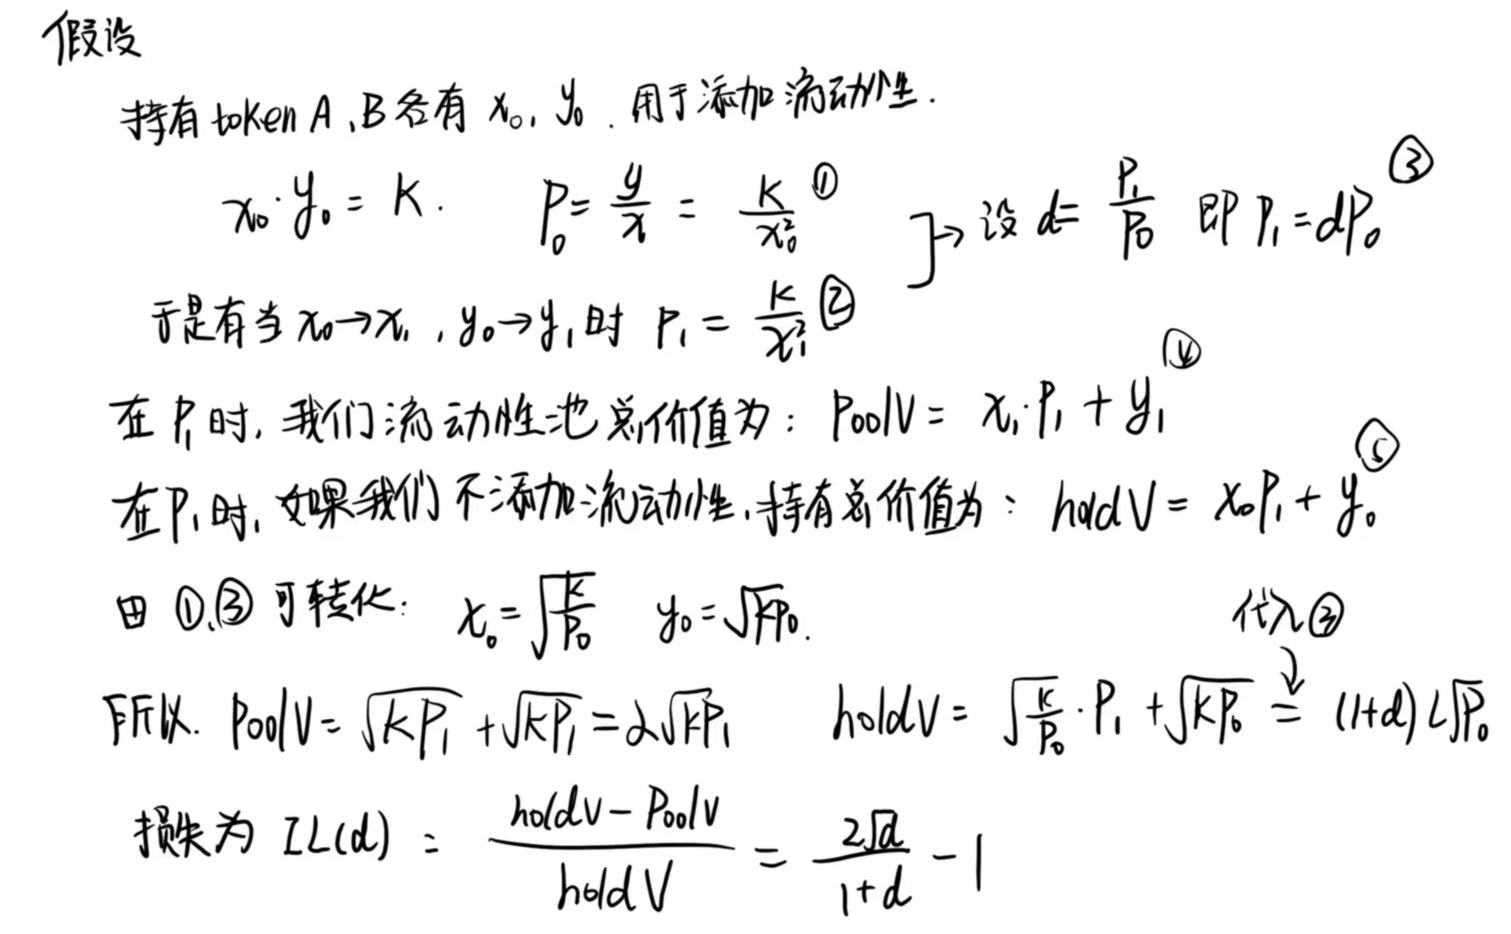 假设
持有 token A、B 各有 x₀, y₀. 用于添加流动性.
x₀·y₀ = K. P₀ = y/x = K/x₀² ① → 设 d = P₁/P₀ 即 P₁ = dP₀ ③
于是有当 x₀→x₁, y₀→y₁时 P₁ = K/x₁² ②
在 P₁ 时, 我们流动性池总价值为: PoolV = x₁·P₁ + y₁ ④
在 P₁ 时, 如果我们不添加流动性, 持有总价值为: holdV = x₀P₁ + y₀ ⑤
由 ①,③ 可转化: x₀ = √(K/P₀) y₀ = √(KP₀).
代入③
所以. PoolV = √(KP₁) + √(KP₁) = 2√(KP₁) holdV = √(K/P₀)·P₁ + √(KP₀) = (1+d)L√P₀
损失为 IL(d) = (holdV - PoolV)/holdV = 2√d/(1+d) - 1